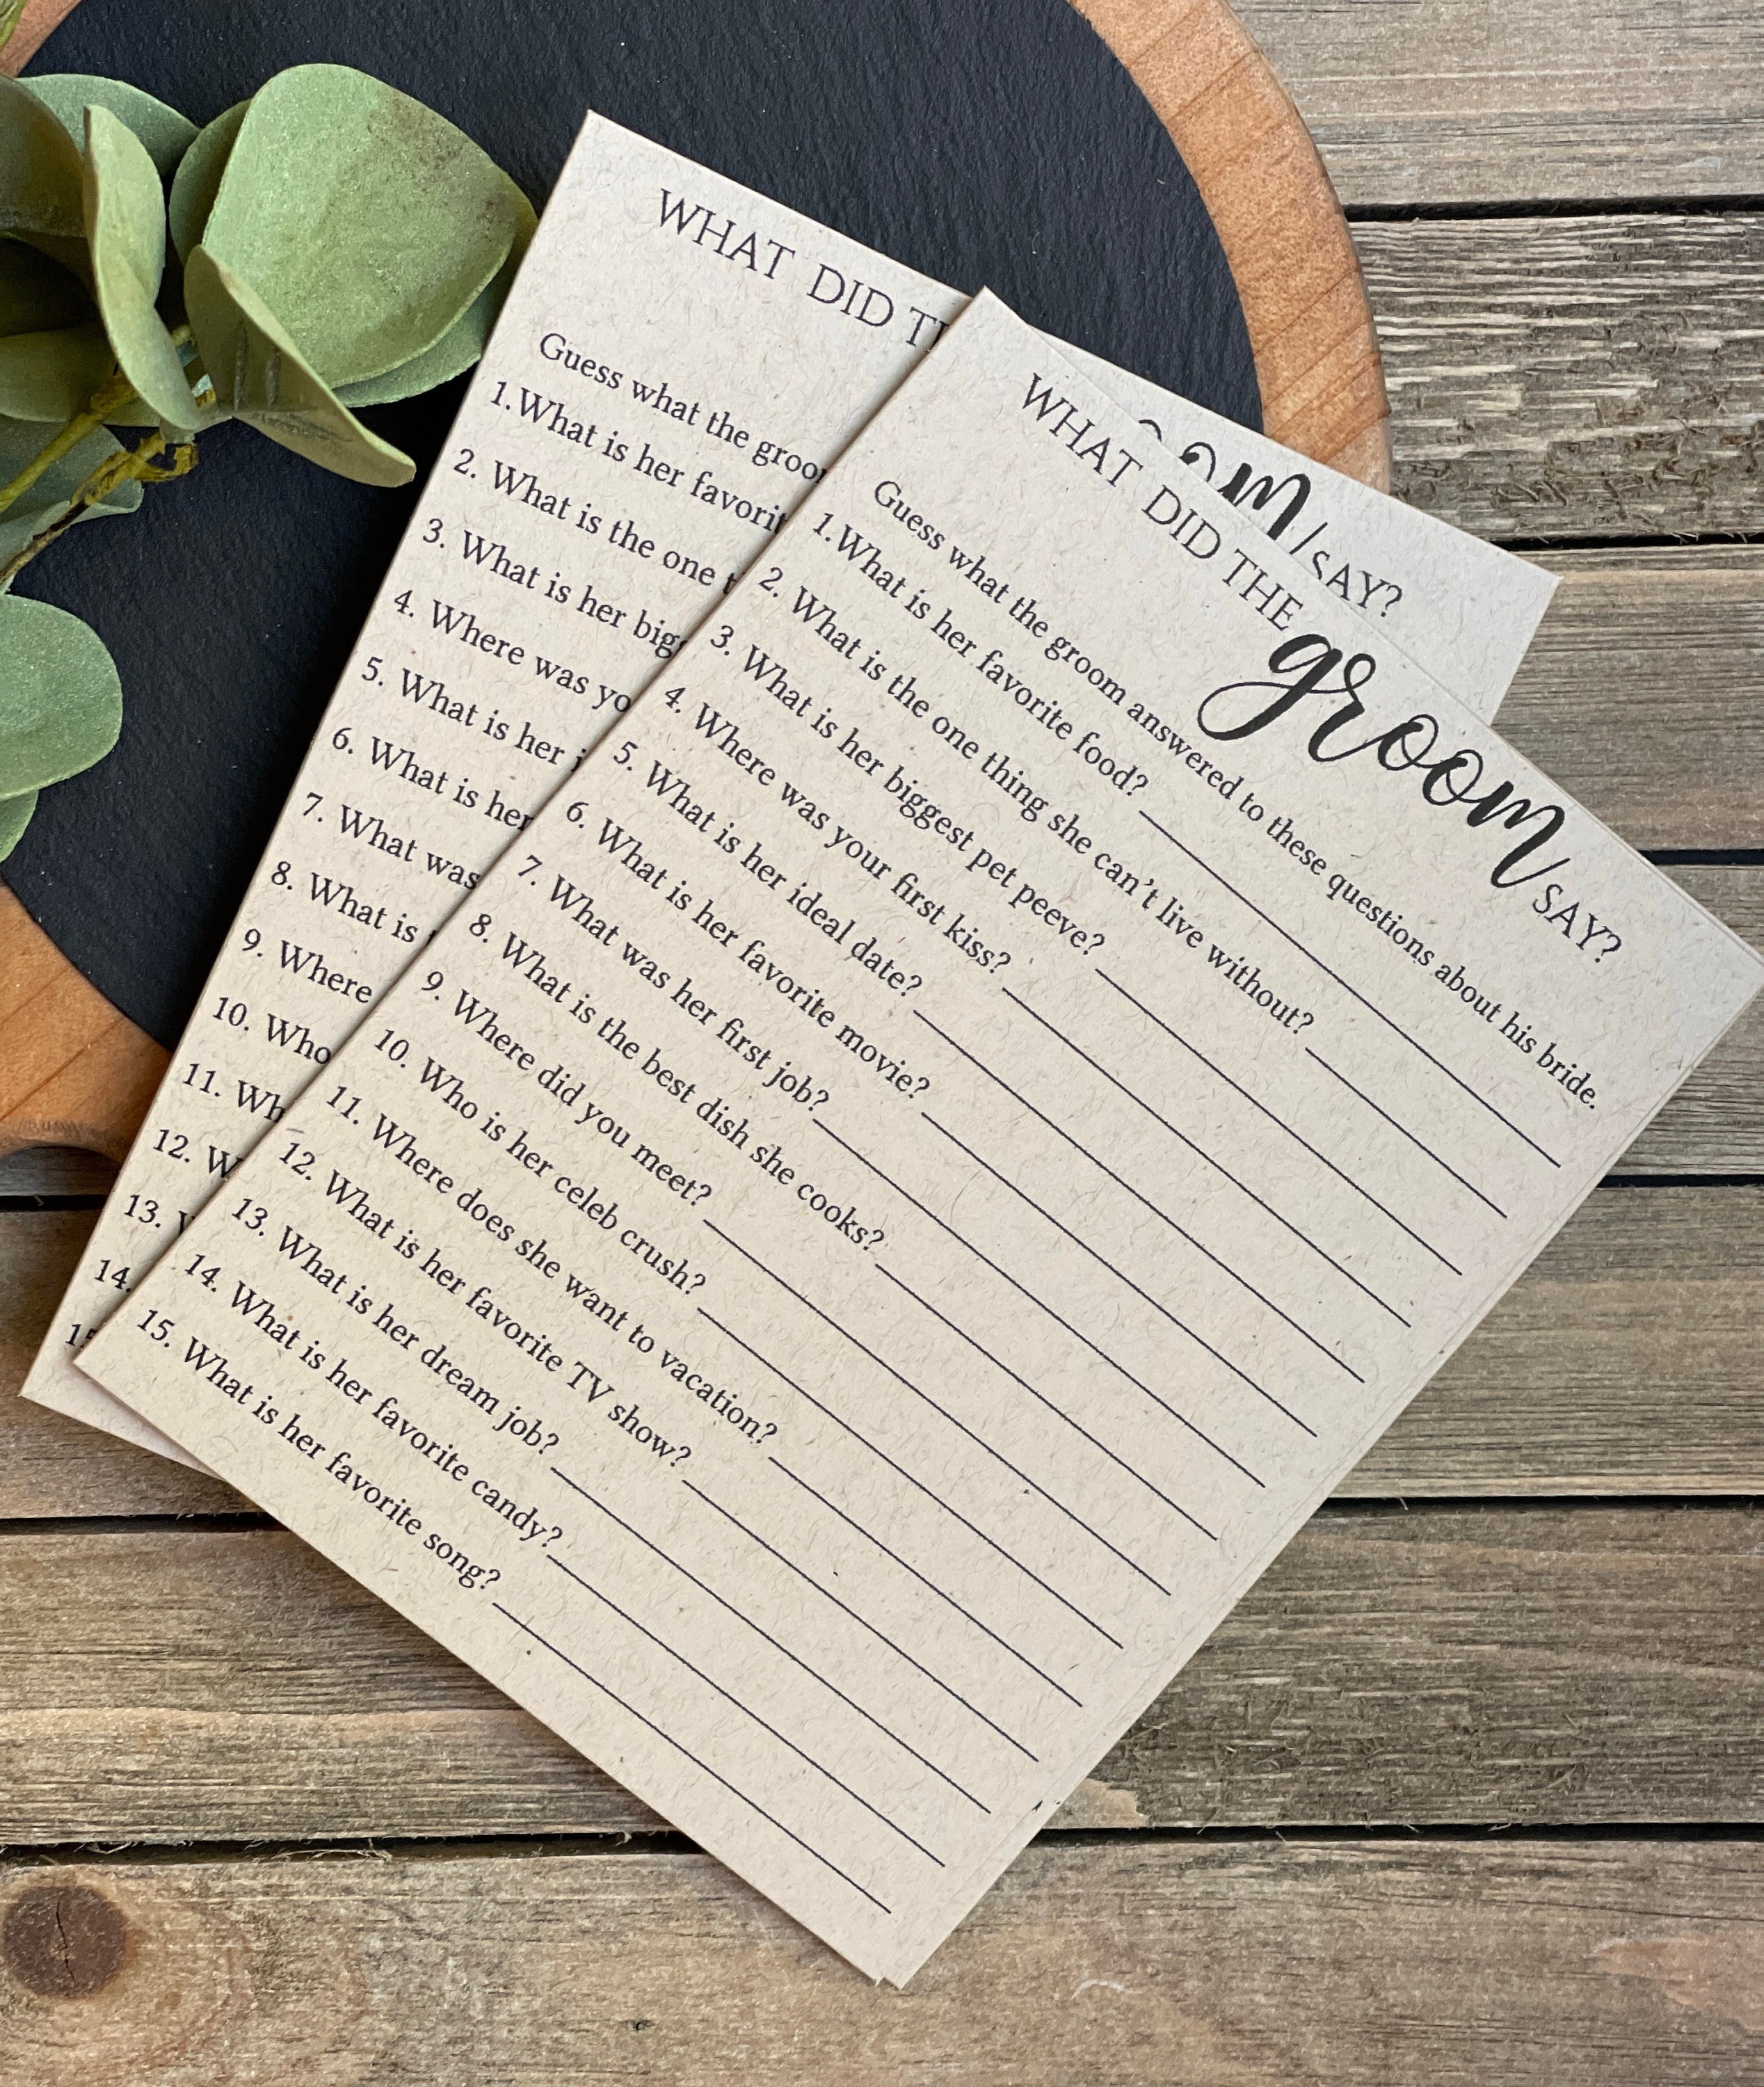 WHAT DID
Guess what the
1.What is her
2. What is the one
3. What is her
4. Where was
5. What is her
6. What is her
7. What was
8. What is
9. Where
10. Who
11.
12.
13.
14.
SAY?
WHAT DID THE groom SAY?
Guess what the groom answered to these questions about his bride.
1.What is her favorite food?
2. What is the one thing she can't live without?
3. What is her biggest pet peeve?
4. Where was your first kiss?
5. What is her ideal date?
6. What is her favorite movie?
7. What was her first job?
8. What is the best dish she cooks?
9. Where did you meet?
10. Who is her celeb crush?
11. Where does she want to vacation?
12. What is her favorite TV show?
13. What is her dream job?
14. What is her favorite candy?
15. What is her favorite song?